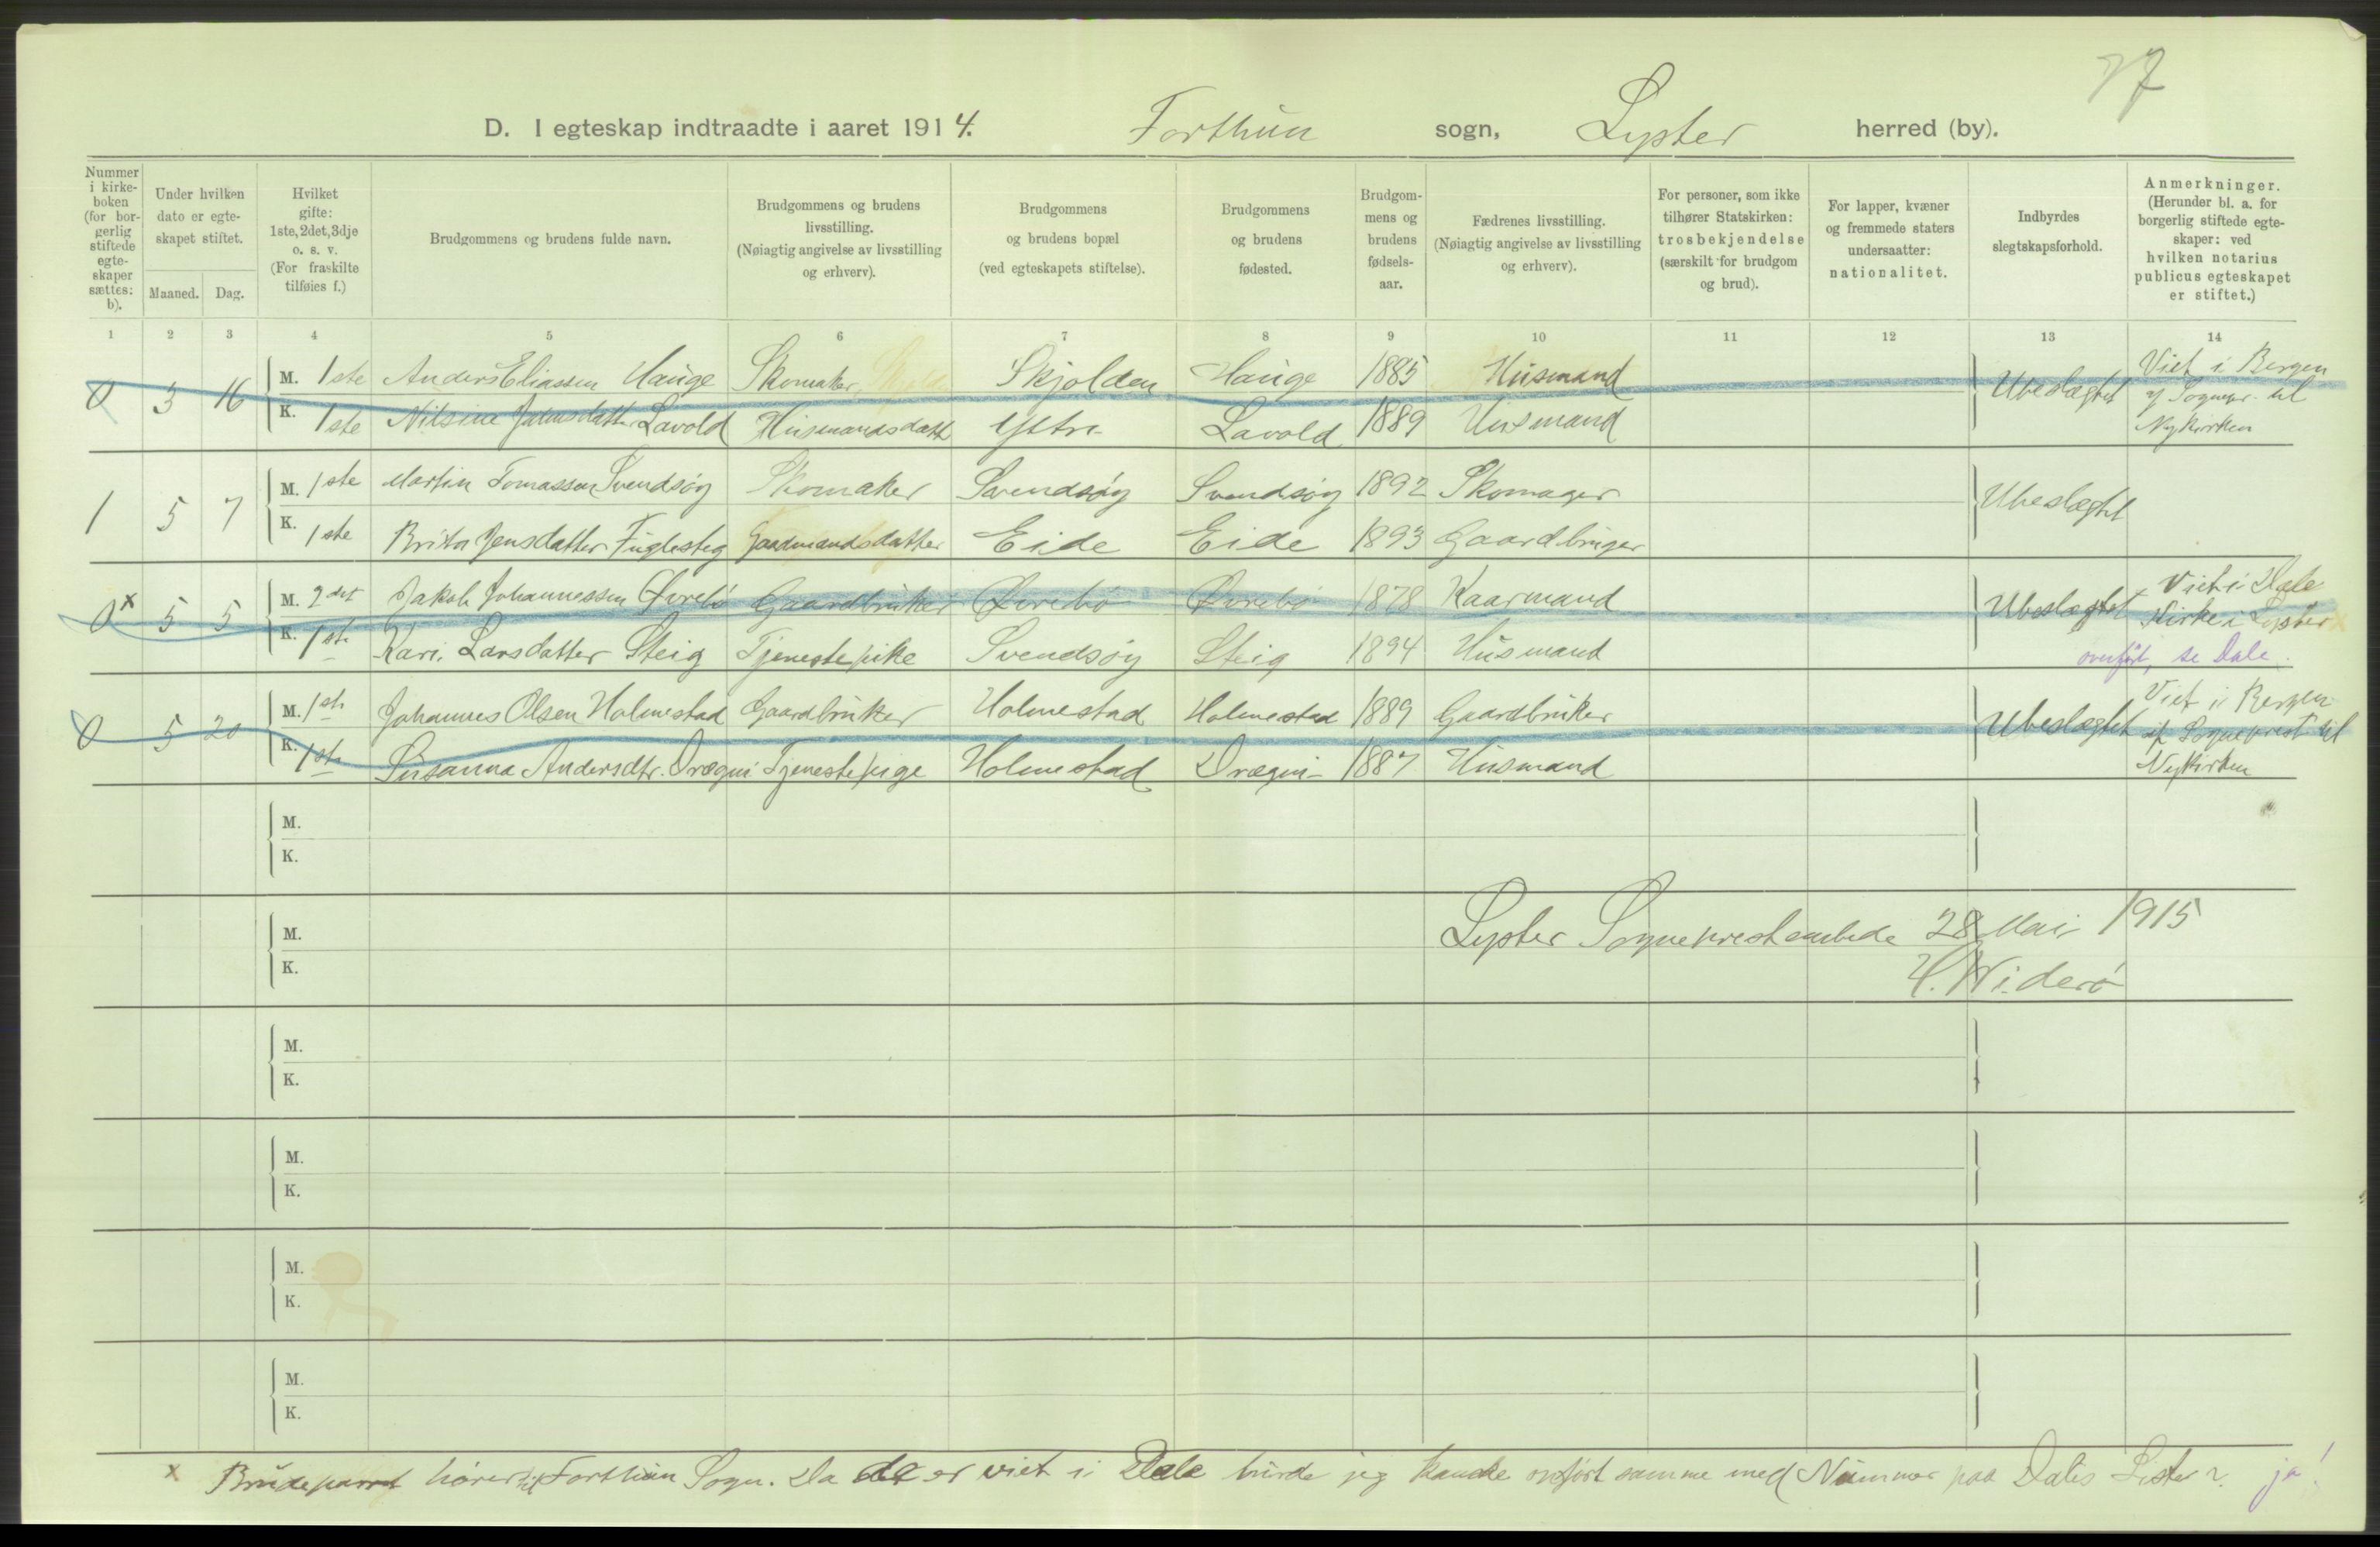 77
D. I egteskap indtraadte i aaret 1914. Forthun sogn, Lyster herred (by).
Nummer i kirke-boken (for bor-gerlig stiftede egte-skaper sættes: b).
Under hvilken dato er egte-skapet stiftet.
Maaned. Dag.
Hvilket gifte: 1ste, 2det, 3dje o. s. v. (For fraskilte tilføies f.)
Brudgommens og brudens fulde navn.
Brudgommens og brudens livsstilling. (Nøiagtig angivelse av livsstilling og erhverv).
Brudgommens og brudens bopæl (ved egteskapets stiftelse).
Brudgommens og brudens fødested.
Brudgom-mens og brudens fødsels-aar.
Fædrenes livsstilling. (Nøiagtig angivelse av livsstilling og erhverv).
For personer, som ikke tilhører Statskirken: trosbekjendelse (særskilt for brudgom og brud).
For lapper, kvæner og fremmede staters undersaatter: nationalitet.
Indbyrdes slegtskapsforhold.
Anmerkninger. (Herunder bl. a. for borgerlig stiftede egte-skaper: ved hvilken notarius publicus egteskapet er stiftet.)
1 2 3 4 5 6 7 8 9 10 11 12 13 14
0 3 16 M. 1ste Anders Eliassen Hauge Skomaker Skjolden Hauge 1885 Husmand Ubeslægtet Viet i Bergen
K. 1ste Nilsine Lavold Husmandsdatt Ystre Lavold 1889 Husmand af Sognepr. til
Nykirken
1 5 7 M. 1ste Martin Tomassen Svendsøy Skomaker Svendsøy Svendsøy 1892 Skomager Ubeslægtet
K. 1ste Brita Jensdatter Fuglesteg Gaardmandsdatter Eide Eide 1893 Gaardbruger
0 x 5 5 M. 2det Jakob Johannessen Øvrebø Gaardbruker Øvrebø Øvrebø 1878 Kaarmand Ubeslægtet Viet i Dale
K. 1ste Kari Larsdatter Steig Tjenestepike Svendsøy Steig 1894 Husmand Kirke i Lyster
overført, se Dale.
0 5 20 M. 1ste Johannes Olsen Holmestad Gaardbruker Holmestad Holmestad 1889 Gaardbruker Ubeslægtet Viet i Bergen
K. 1ste Susanna Andersdtr. Drægni Tjenestepige Holmestad Drægni 1887 Husmand af Sogneprest til
Nykirken
M.
K.
M. Lyster Sogneprestembede 28 Mai 1915
K. H. Widerø
M.
K.
M.
K.
M.
K.
M.
K.
x Brudeparret hører til Forthun Sogn. Da de er viet i Dale burde jeg kanske opført samme med Nummer paa Dales Lister? ja!